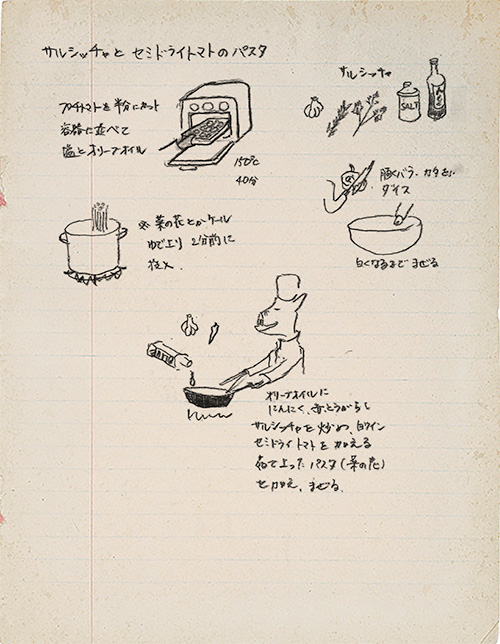 サルシッチャと セミドライトマトの パスタ
プチトマトを半分にカット
容器に並べて
塩とオリーブオイル
150℃
40分
サルシッチャ
SALT
豚バラ・カタロース
ダイス
白くなるまで まぜる
※ 菜の花とかケール
ゆで上り 2分前に
投入.
オリーブオイルに
にんにく、赤とうがらし
サルシッチャを炒め、白ワイン
セミドライトマトを加える
茹で上ったパスタ(菜の花)
を加え、まぜる、